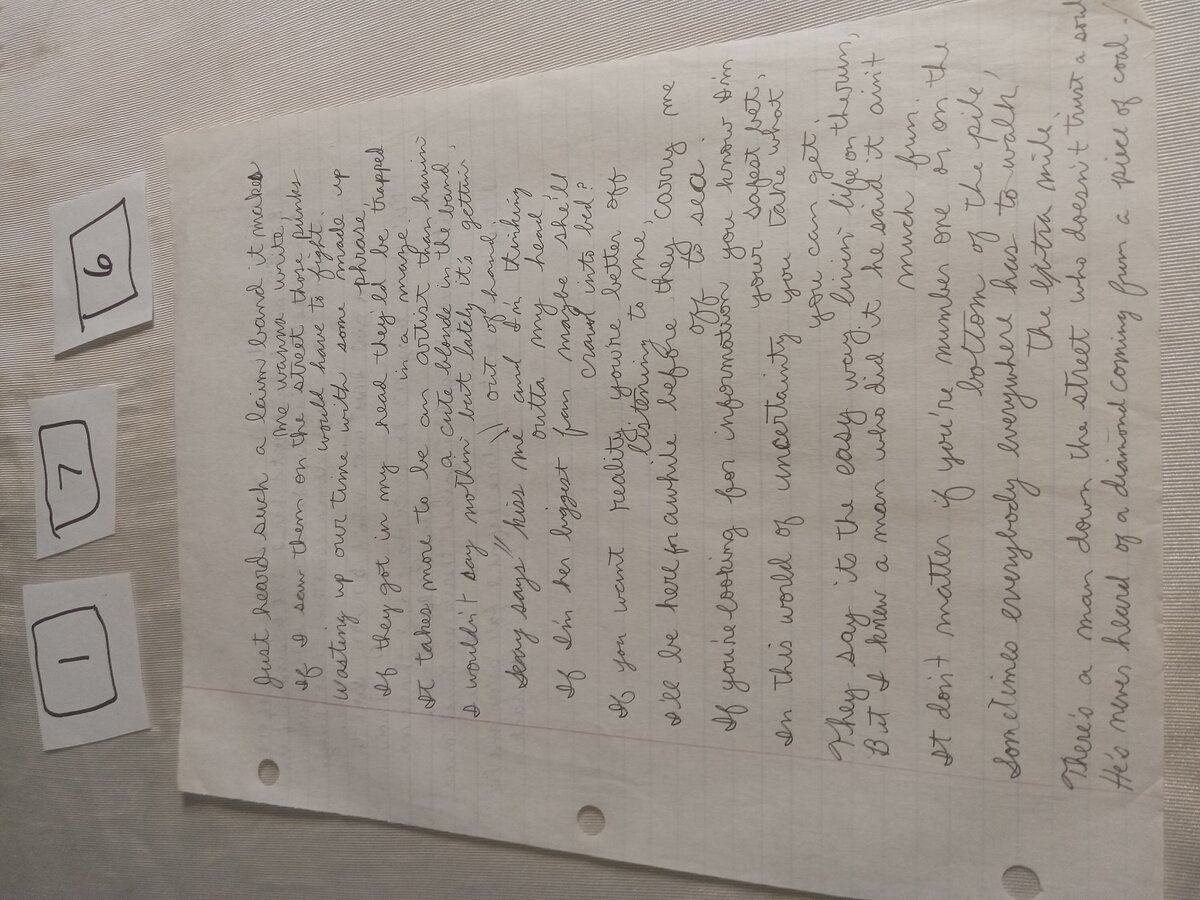 1 7 6
Just heard such a laim band it makes
me wanna write,
If I saw them on the street those punks
would have to fight.
Wasting up our time with some made up
phrase,
If they got in my head they'ld be trapped
in a maze.
It takes more to be an artist than havin'
a cute blonde in the band,
I wouldn't say nothin' but lately it's gettin'
out of hand.
Sexy says "kiss me" and I'm thinking
outta my head,
If I'm her biggest fan maybe she'll
crawl into bed?
If you want reality you're better off
listening to me,
I'll be here for awhile before they carry me
off to sea.
If you're looking for information you know I'm
your safest bet,
In this world of uncertainty you take what
you can get.
They say it's the easy way livin' life on the run,
But I knew a man who did it he said it ain't
much fun.
It don't matter if you're number one or on the
bottom of the pile,
Sometimes everybody everywhere has to walk
the extra mile.
There's a man down the street who doesn't trust a soul
He's never heard of a diamond coming frum a piece of coal.